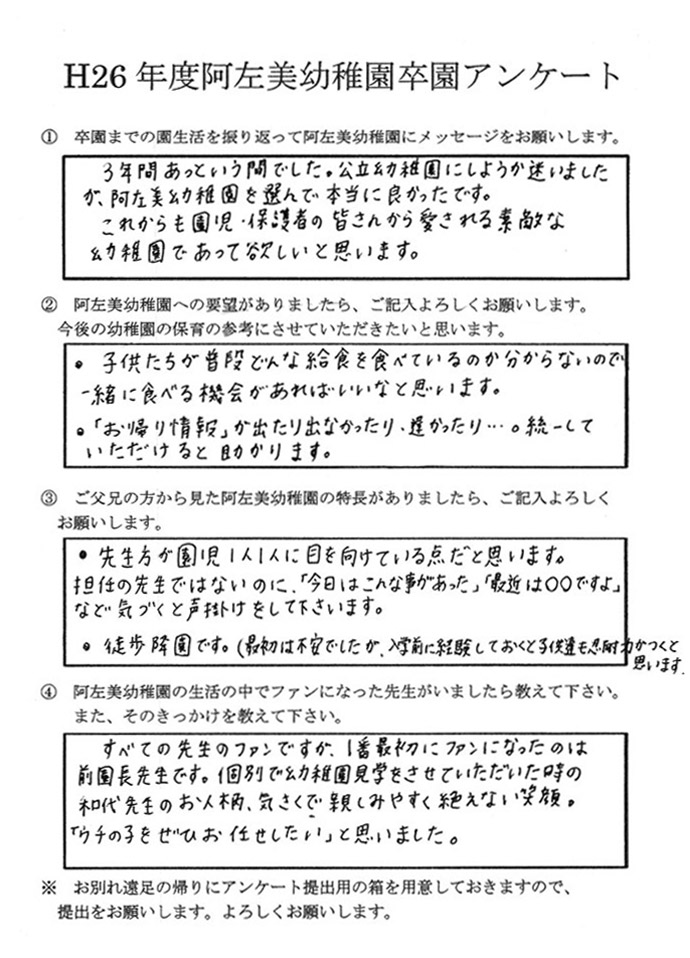 H26 年度阿左美幼稚園卒園アンケート
① 卒園までの園生活を振り返って阿左美幼稚園にメッセージをお願いします。
3年間あっという間でした。公立幼稚園にしようか迷いました
が、阿左美幼稚園を選んで本当に良かったです。
これからも園児・保護者の皆さんから愛される素敵な
幼稚園であって欲しいと思います。
② 阿左美幼稚園への要望がありましたら、ご記入よろしくお願いします。
今後の幼稚園の保育の参考にさせていただきたいと思います。
• 子供たちが普段どんな給食を食べているのか分からないので
一緒に食べる機会があればいいなと思います。
•「お帰り情報」が出たり出なかったり、遅かったり…。統一して
いただけると助かります。
③ ご父兄の方から見た阿左美幼稚園の特長がありましたら、ご記入よろしく
お願いします。
• 先生方が園児1人1人に目を向けている点だと思います。
担任の先生ではないのに、「今日はこんな事があった」「最近は〇〇ですよ」
など気づくと声掛けをして下さいます。
• 徒歩降園です。(最初は不安でしたが、入学前に経験しておくと子供達も忍耐力がつくと
思います
④ 阿左美幼稚園の生活の中でファンになった先生がいましたら教えて下さい。
また、そのきっかけを教えて下さい。
すべての先生のファンですが、1番最初にファンになったのは
前園長先生です。個別で幼稚園見学をさせていただいた時の
和代先生のお人柄、気さくで親しみやすく絶えない笑顔。
「ウチの子をぜひお任せしたい」と思いました。
※ お別れ遠足の帰りにアンケート提出用の箱を用意しておきますので、
提出をお願いします。よろしくお願いします。